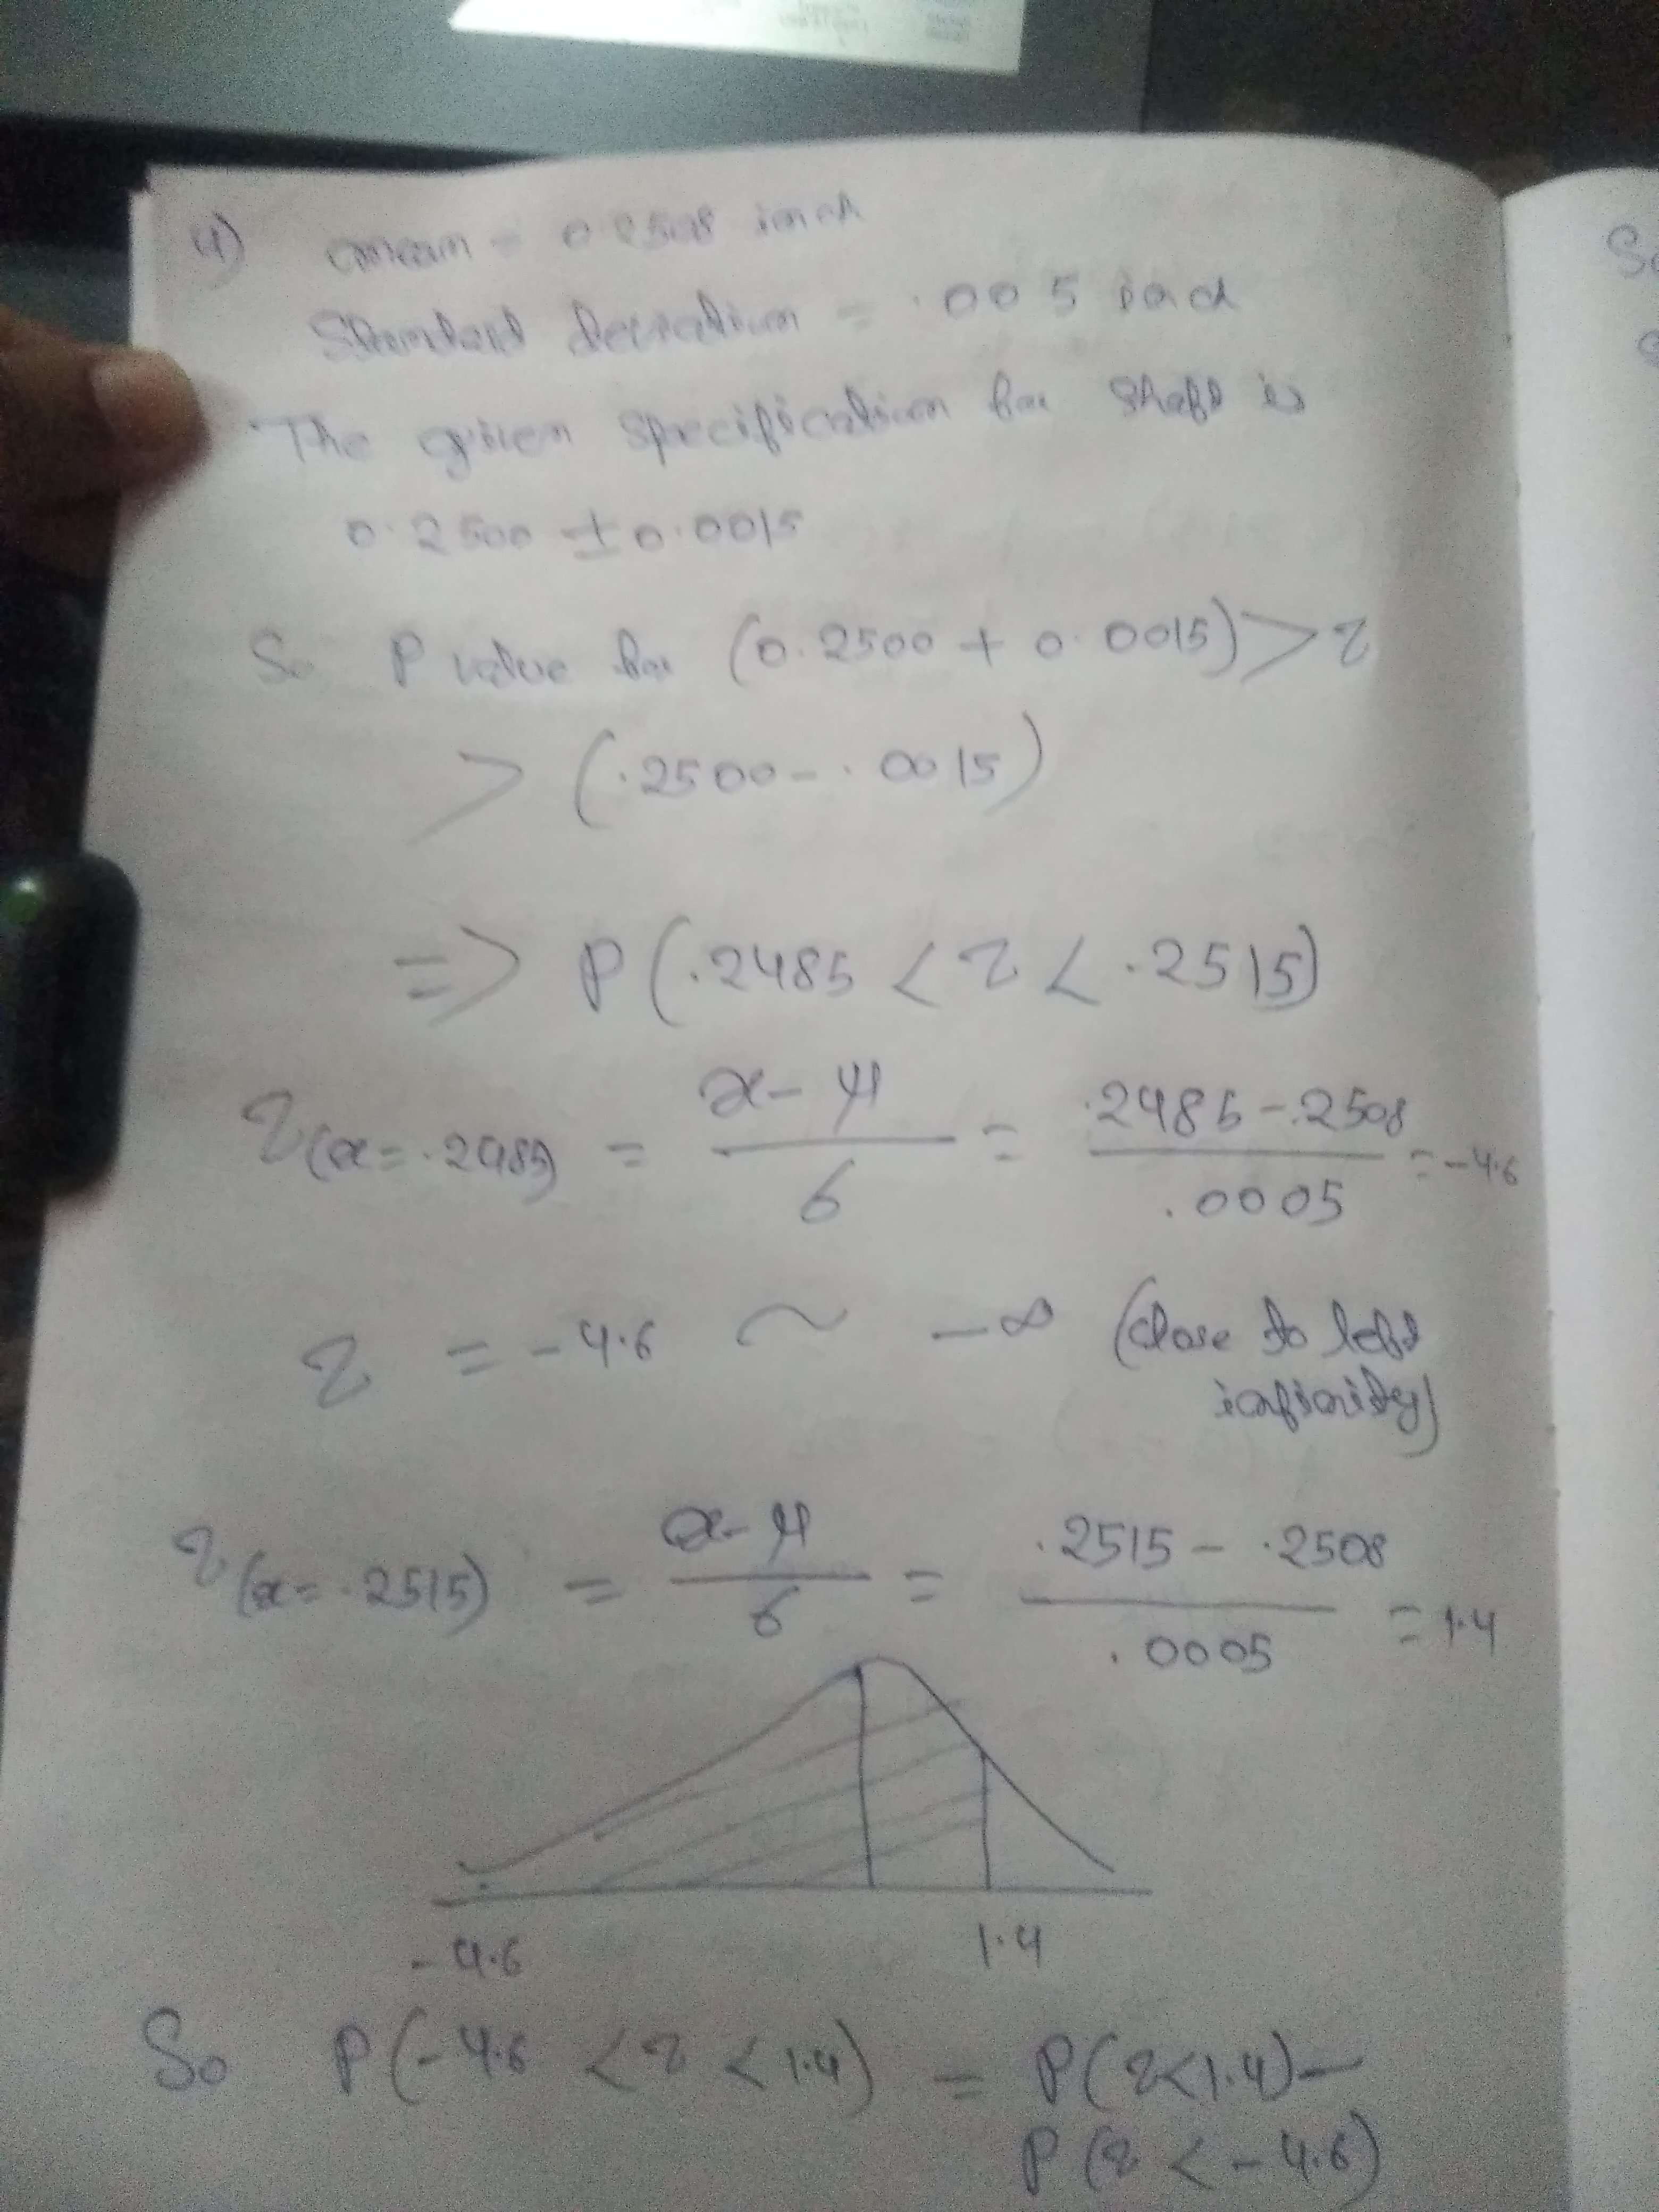 4) mean = 0.2508 inch
Standard deviation = .005 inch
The given specification for shaft is
0.2500 ± 0.0015
So P value for (0.2500 + 0.0015) > z
> (.2500 - .0015)
=> P(.2485 < z < .2515)
z(x = .2485) = x-μ / σ = .2485 - .2508 / .0005 = -4.6
z = -4.6 ~ -∞ (close to left
infinity)
z(x = .2515) = x-μ / σ = .2515 - .2508 / .0005 = 1.4
-4.6 1.4
So P(-4.6 < z < 1.4) = P(z<1.4) -
P(z < -4.6)